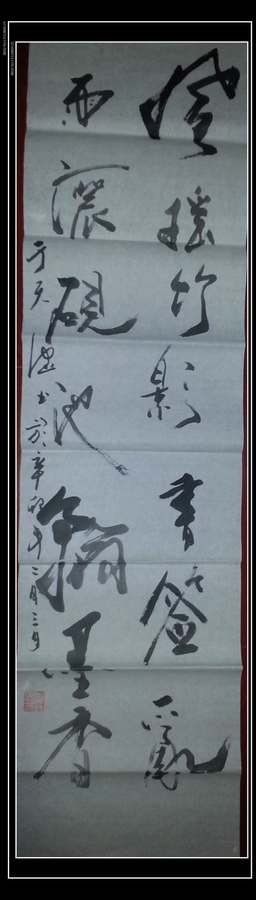 風搖竹影書簽亂
雨灑硯池翰墨香
于天 书於辛卯年二月三日